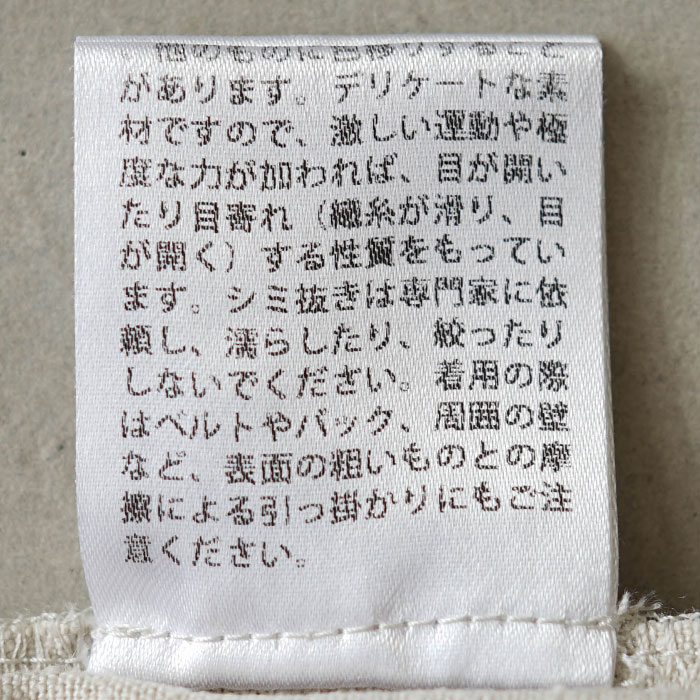 他のものに色移りすること
があります。デリケートな素
材ですので、激しい運動や極
度な力が加われば、目が開い
たり目寄れ（織糸が滑り、目
が開く）する性質をもってい
ます。シミ抜きは専門家に依
頼し、濡らしたり、絞ったり
しないでください。着用の際
はベルトやバック、周囲の壁
など、表面の粗いものとの摩
擦による引っ掛かりにもご注
意ください。